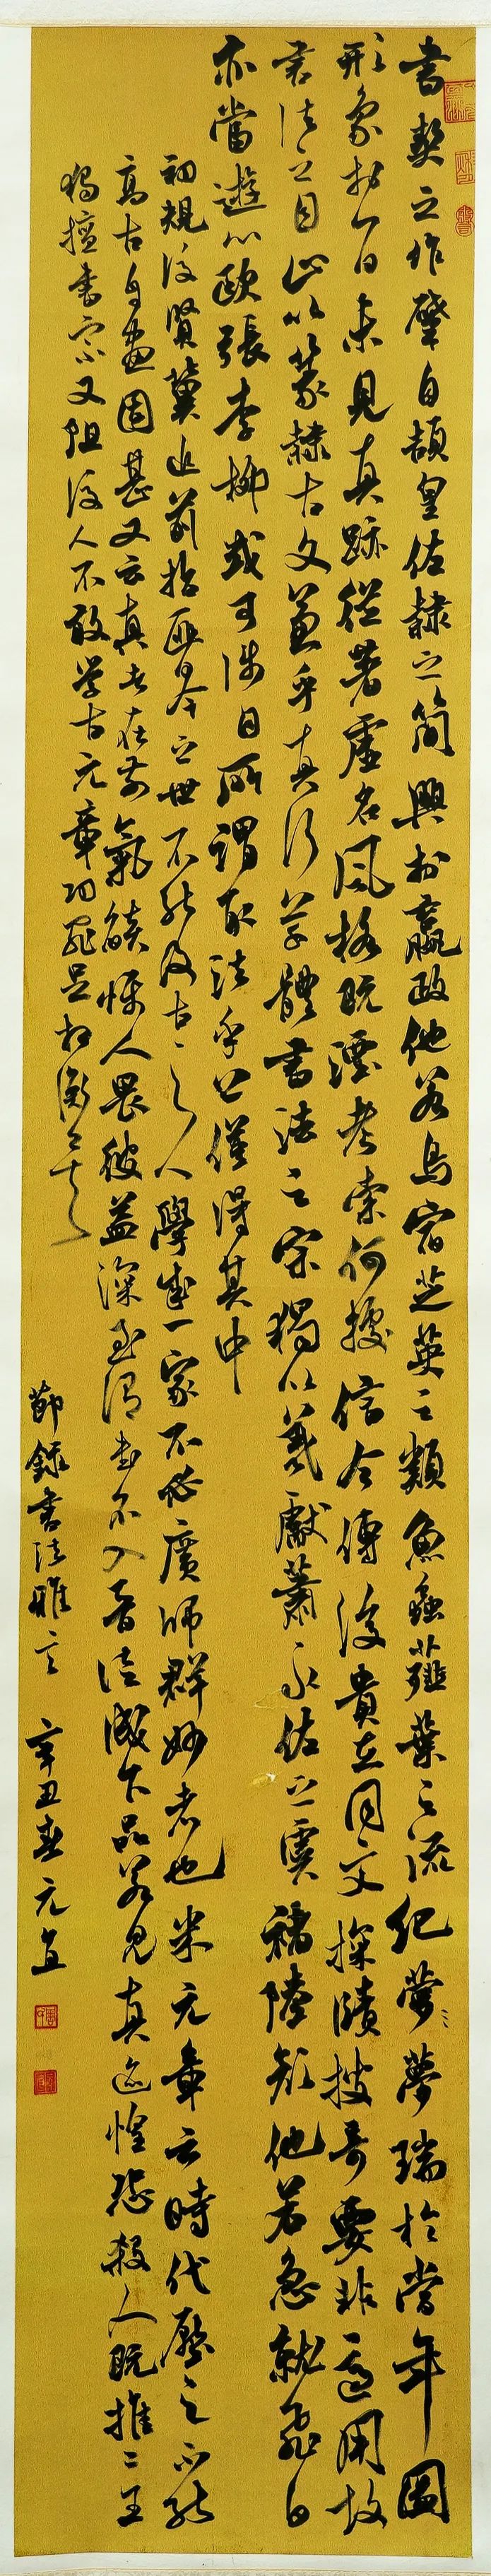 書契之作肇自頡皇佐隸之簡興於嬴政他若鳥宿芝英之類魚蟲薤葉之流紀夢瑞於當年圖
形象於一日未見真跡徒著虛名風格既湮考索何據信今傳後貴在同文探賾搜奇要非適用故
書法之目止以篆隸古文兼乎真行草體書法之宗獨以羲獻蕭永佐之虞褚陸顏他若急就飛白
亦當遊心歐張李柳或可涉目所謂取法乎上僅得其中
初規後賢冀追前哲匪今之世不能及古之人學成一家不必廣師群妙者也米元章云時代壓之不能
高古自畫固甚又云真者在前氣焰懾人畏彼益深至謂書不入晉法徒成下品若見真迹惶恐殺人既推二王
獨擅書宗又阻後人不敢學古元章功罪足相衡矣
節錄書法雅言 辛丑春元宜